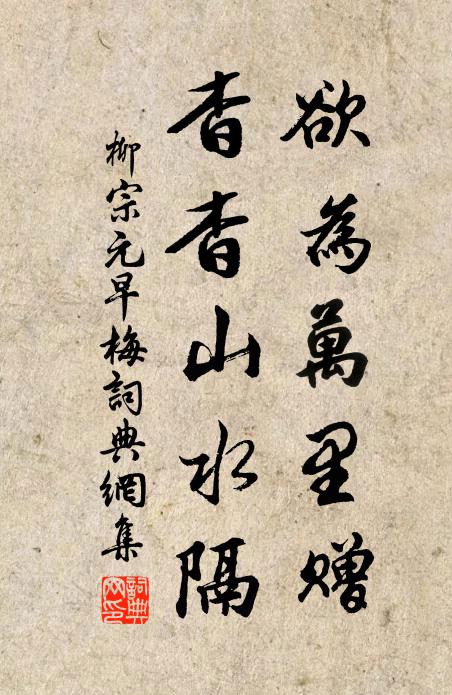 欲為萬里贈
杳杳山水隔
柳宗元早梅詞典網集
詞典网印